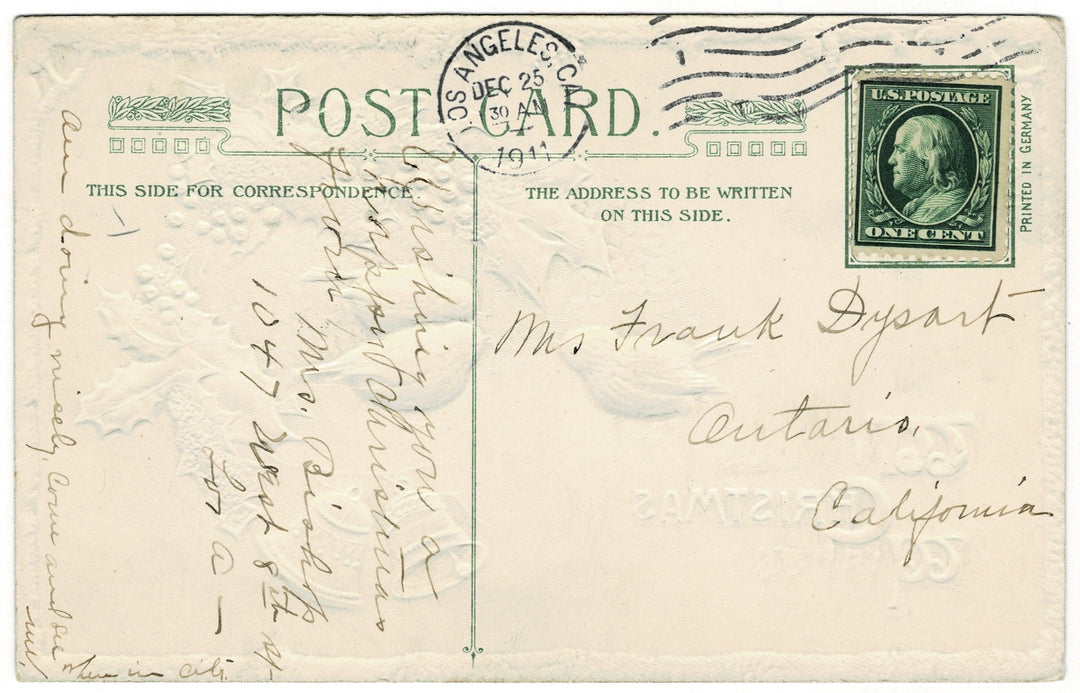 POST CARD.
THIS SIDE FOR CORRESPONDENCE
THE ADDRESS TO BE WRITTEN
ON THIS SIDE.
LOS ANGELES, CAL
DEC 25
30 AM
1911
U.S. POSTAGE
ONE CENT
PRINTED IN GERMANY
Mrs Frank Dysart
Ontario,
California
Wishing you a
Christmas
from
Mrs. Bishop
1047 West 8th St
Los A—
Am doing nicely Come and see
me
when in city
CHRISTMAS